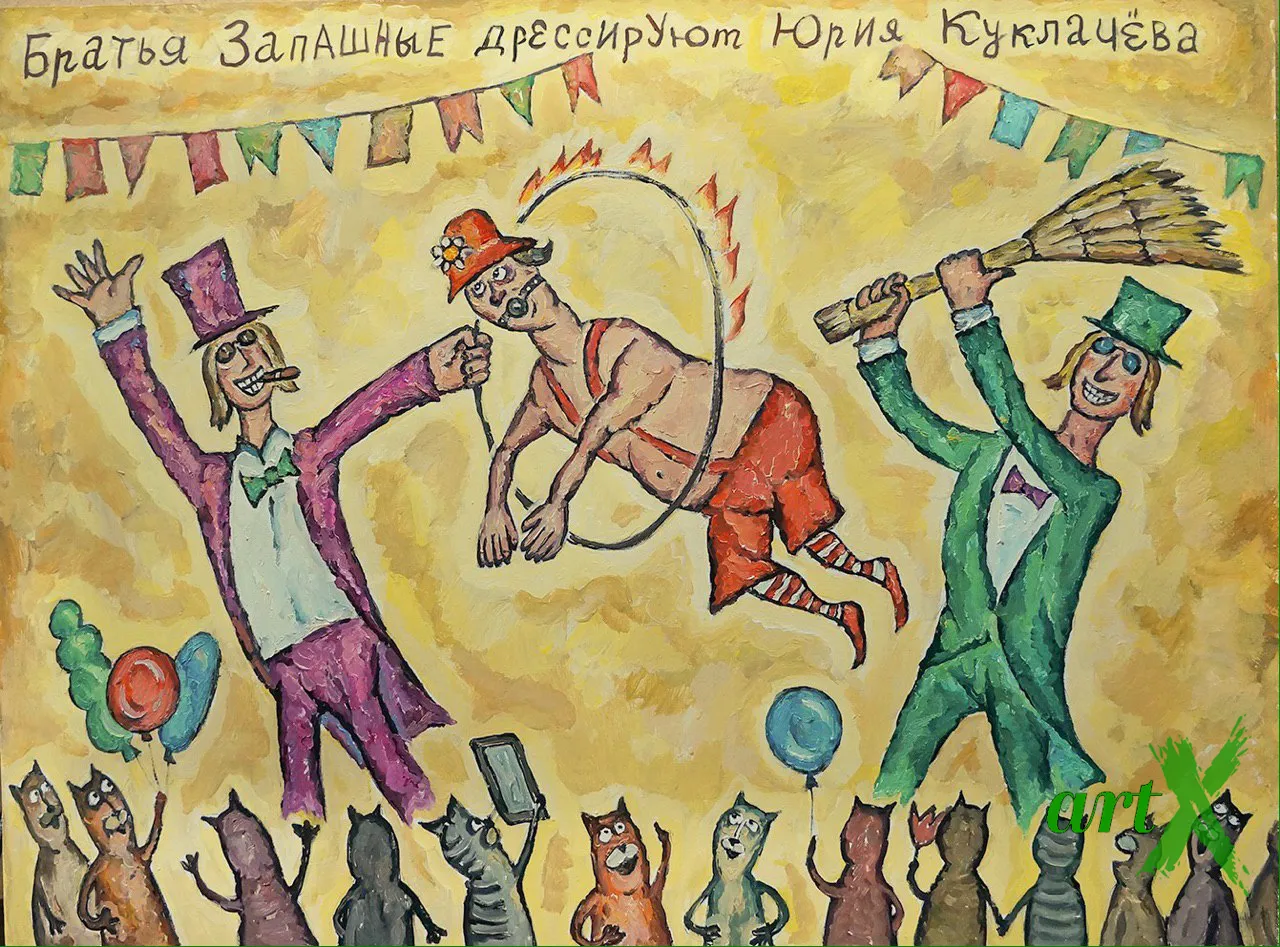 Братья Запашные дрессируют Юрия Куклачёва
artX